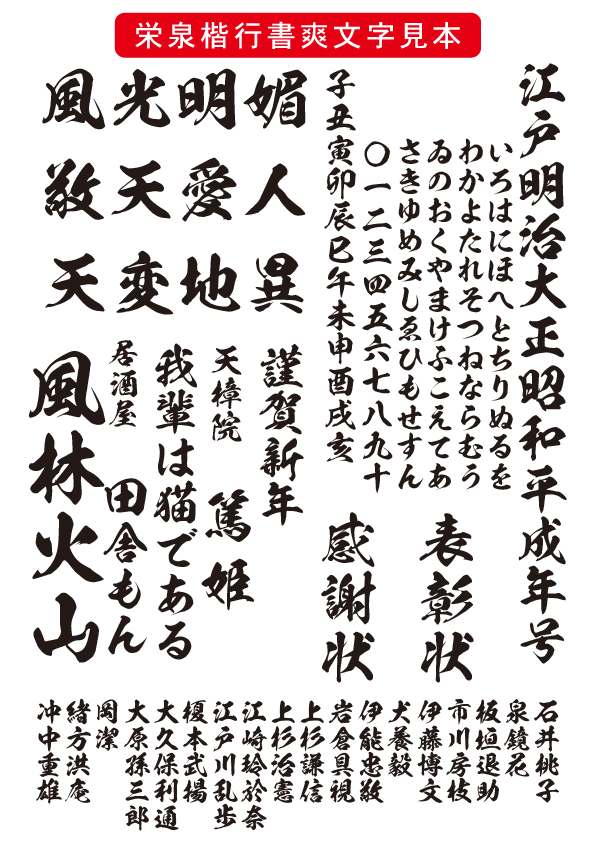 栄泉楷行書爽文字見本
江戸明治大正昭和平成年号
いろはにほへとちりぬるを
わかよたれそつねならむう
ゐのおくやまけふこえてあ
さきゆめみしゑひもせすん
〇一二三四五六七八九十
子丑寅卯辰巳午未申酉戌亥
表彰状
感謝状
媚人異
明愛地
光天変
風敬天
謹賀新年
天樟院
篤姫
我輩は猫である
居酒屋
田舎もん
風林火山
石井桃子
泉鏡花
板垣退助
市川房枝
伊藤博文
犬養毅
伊能忠敬
岩倉具視
上杉謙信
上杉治憲
江崎玲於奈
江戸川乱歩
榎本武揚
大久保利通
大原孫三郎
岡潔
緒方洪庵
沖中重雄